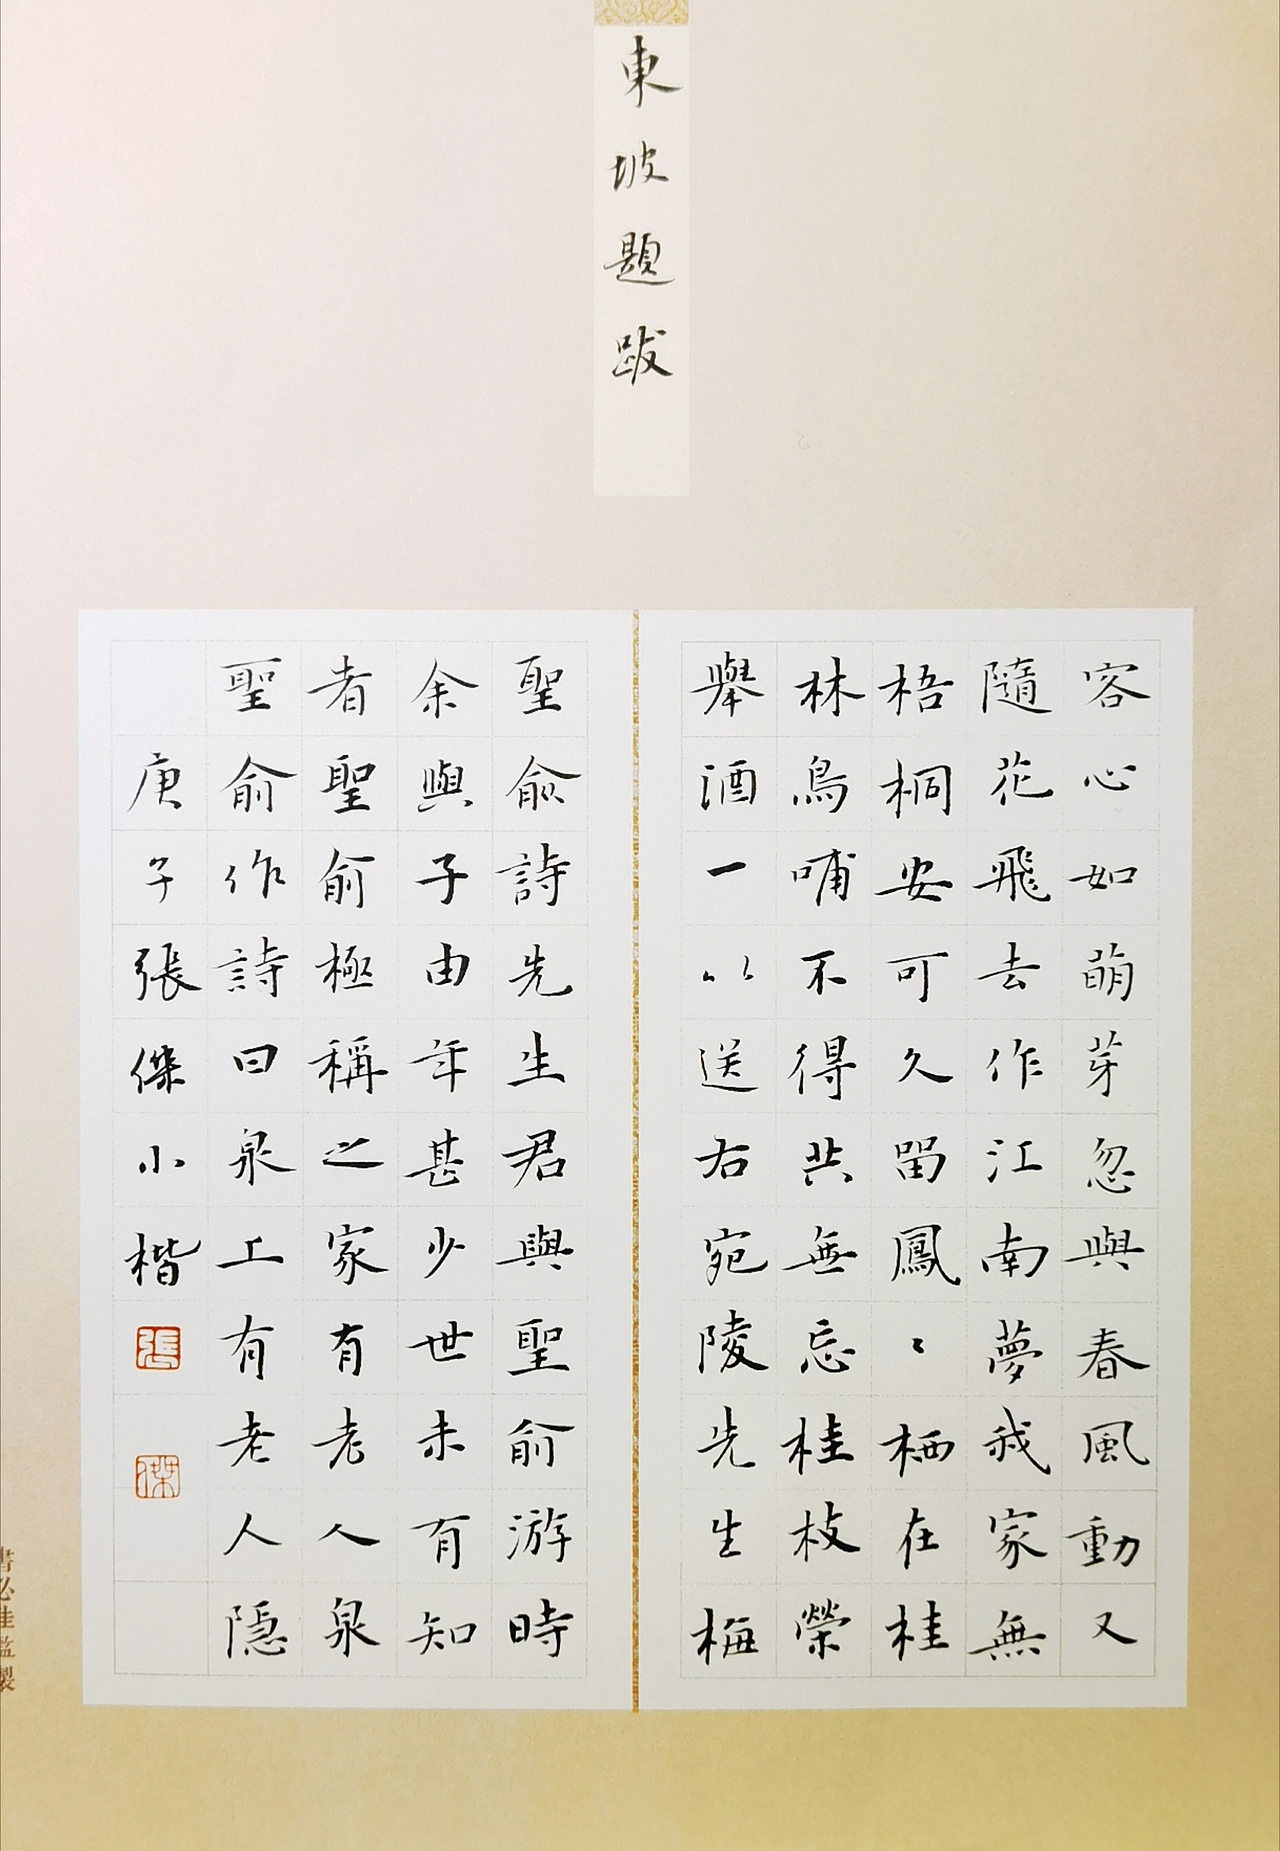 東坡題跋
客心如萌芽忽與春風動又
隨花飛去作江南夢我家無
梧桐安可久留鳳〻栖在桂
林鳥哺不得共無忘桂枝榮
舉酒一以送右宛陵先生梅
聖俞詩先生君與聖俞游時
余與子由年甚少世未有知
者聖俞極稱之家有老人泉
聖俞作詩曰泉上有老人隱
庚子張傑小楷
張
傑
書必佳監製